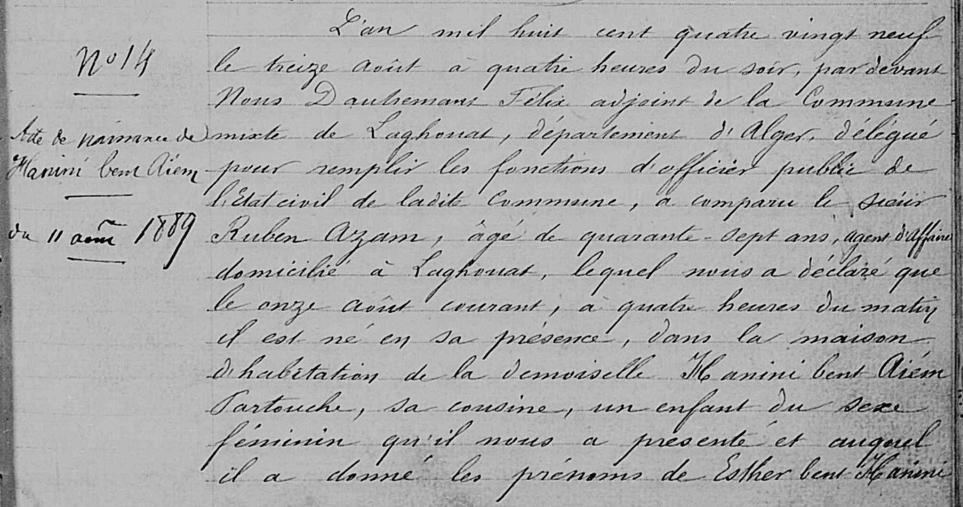 No 14
Acte de naissance de
Hanini bent Aïem
du 11 août 1889
L'an mil huit cent quatre vingt neuf
le treize août à quatre heures du soir, par devant
Nous Dautremant Félix adjoint de la Commune
mixte de Laghouat, département d'Alger, délégué
pour remplir les fonctions d'officier public de
l'Etat civil de ladite Commune, a comparu le sieur
Ruben Azam, âgé de quarante-sept ans, agent d'Affaire
domicilié à Laghouat, lequel nous a déclaré que
le onze août courant, à quatre heures du matin
il est né en sa présence, dans la maison
d'habitation de la demoiselle Hanini bent Aïém
Partouche, sa cousine, un enfant du sexe
féminin qu'il nous a présenté et auquel
il a donné les prénoms de Esther bent Hanini